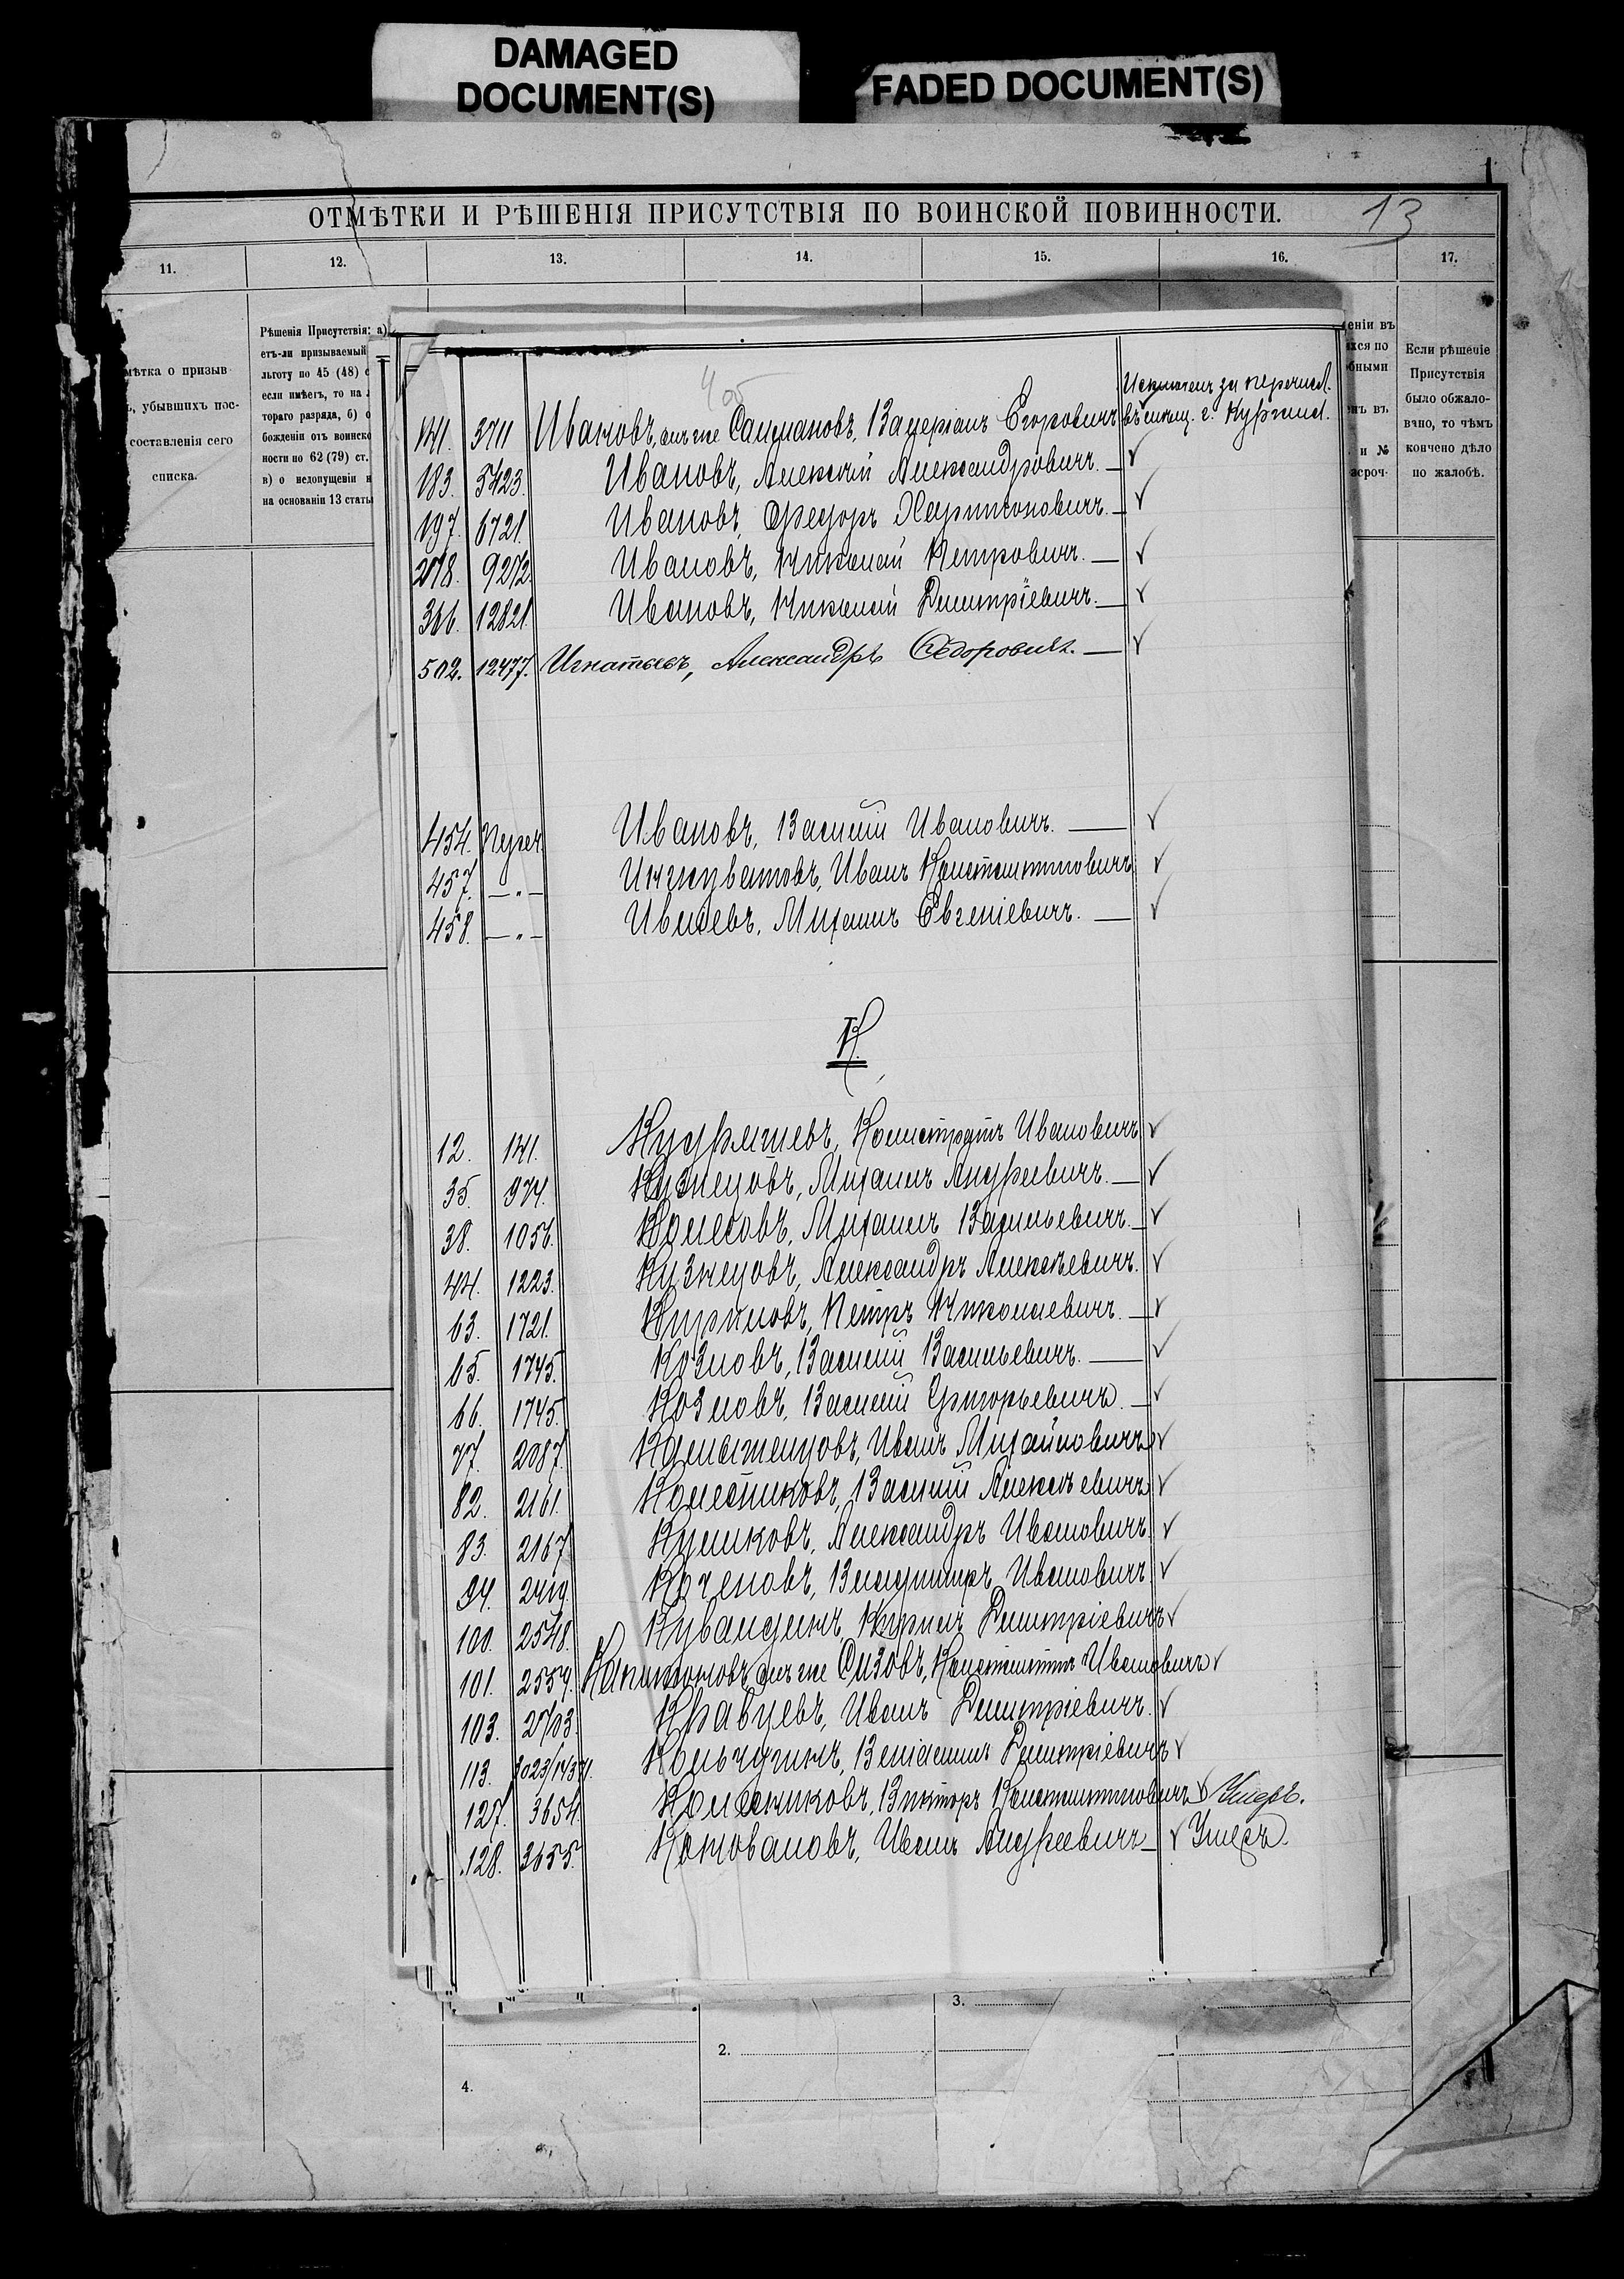 DAMAGED
DOCUMENT(S)
FADED DOCUMENT(S)
ОТМѢТКИ И РѢШЕНІЯ ПРИСУТСТВІЯ ПО ВОИНСКОЙ ПОВИННОСТИ.
13
11. 12. 13. 14. 15. 16. 17.
мѣтка о призыв
, убывшихъ пос-
составленія сего
списка.
Рѣшенія Присутствія: а)
етъ-ли призываемый
льготу по 45 (48) с
если имѣетъ, то на
тораго разряда, б) о
божденіи отъ воинск
ности по 62 (79) ст.
в) о недопущеніи н
на основаніи 13 стать
еніи въ
хся по
бными
нъ въ
и №
зсроч-
Если рѣшеніе
Присутствія
было обжало-
вано, то чѣмъ
кончено дѣло
по жалобѣ.
141. 3711 Ивановъ, онъ же Салмановъ, Валеріанъ Егоровичъ Исключенъ за перечисл. въ мѣщ. г.
183. 5423. Ивановъ, Алексѣй Александровичъ. — ✓
197. 6721. Ивановъ, Ѳедоръ Харитоновичъ. — ✓
278. 9272. Ивановъ, Николай Петровичъ. — ✓
366. 12821. Ивановъ, Николай Дмитріевичъ. — ✓
502. 12477. Игнатьевъ, Александръ Ѳедоровичъ. — ✓
454. Переч. Ивановъ, Василій Ивановичъ. — ✓
457. —"— Иванъ Константиновичъ ✓
458. —"— Ивлевъ, Михаилъ Евгеніевичъ. — ✓
К.
12. 141. Кудряшевъ, Калистратъ Ивановичъ ✓
35. 974. Кузнецовъ, Михаилъ Андреевичъ. — ✓
38. 1056. Колесовъ, Михаилъ Васильевичъ. — ✓
44. 1223. Кузнецовъ, Александръ Алексѣевичъ. ✓
63. 1721. Кириловъ, Петръ Николаевичъ. — ✓
65. 1745. Козловъ, Василій Васильевичъ. — ✓
66. 1745. Козловъ, Василій Григорьевичъ. — ✓
77. 2087. Иванъ Михайловичъ ✓
82. 2161. Колесниковъ, Василій Алексѣевичъ ✓
83. 2167. Куликовъ, Александръ Ивановичъ. ✓
94. 2419. Коченовъ, Владиміръ Ивановичъ ✓
100. 2548. Кувалдинъ, Кирилъ Дмитріевичъ ✓
101. 2554. Капитоновъ, онъ же Сизовъ, Константинъ Ивановичъ ✓
103. 2703. Кравцевъ, Иванъ Дмитріевичъ. ✓
113. 3023/14371. Кольчугинъ, Веніаминъ Дмитріевичъ ✓
127. 3654. Колесниковъ, Викторъ Константиновичъ ✓ Умеръ.
128. 3655. Коноваловъ, Иванъ Андреевичъ — ✓ Умеръ.
3.
2.
4.